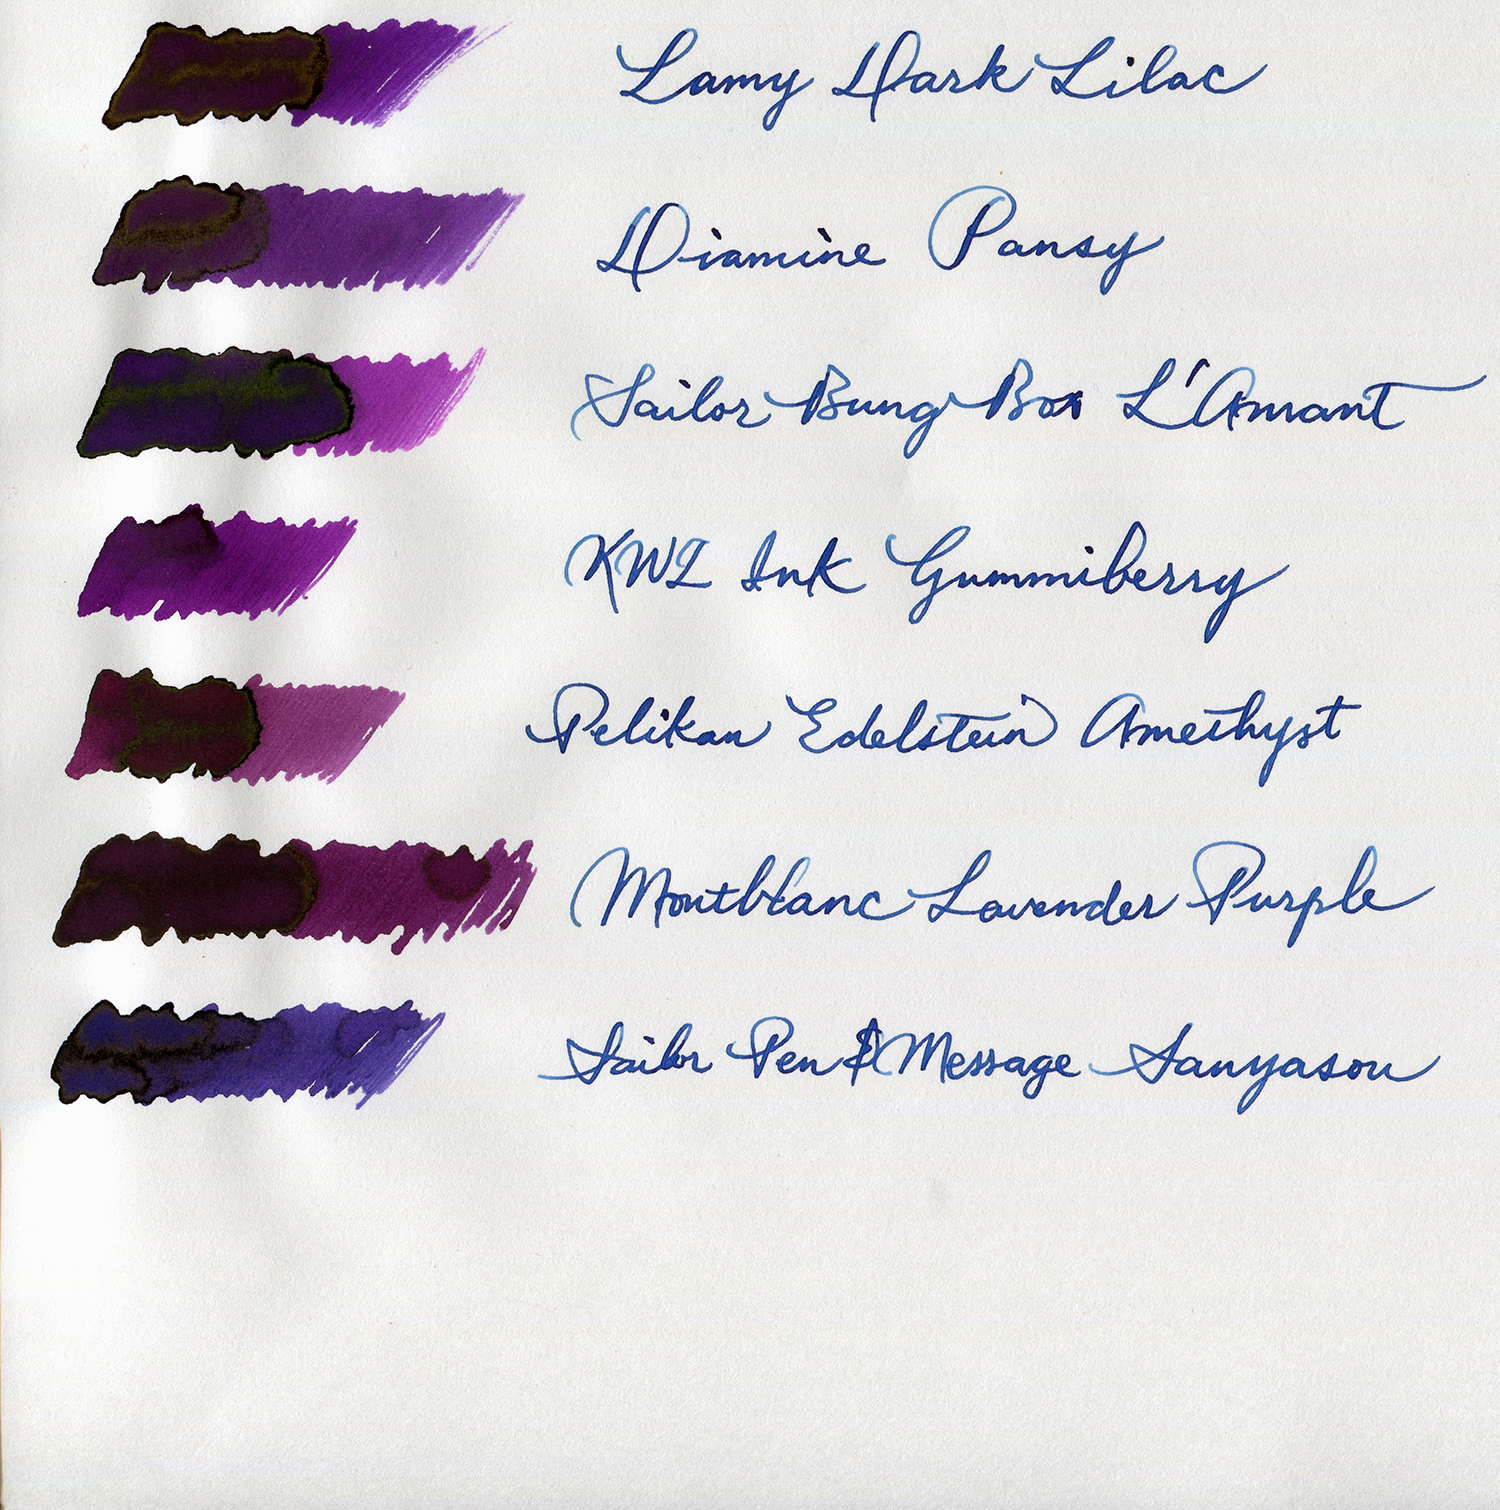 Lamy Dark Lilac
Diamine Pansy
Sailor Bung Box L'Amant
KWZ Ink Gummiberry
Pelikan Edelstein Amethyst
Montblanc Lavender Purple
Sailor Pen & Message Sanyasou